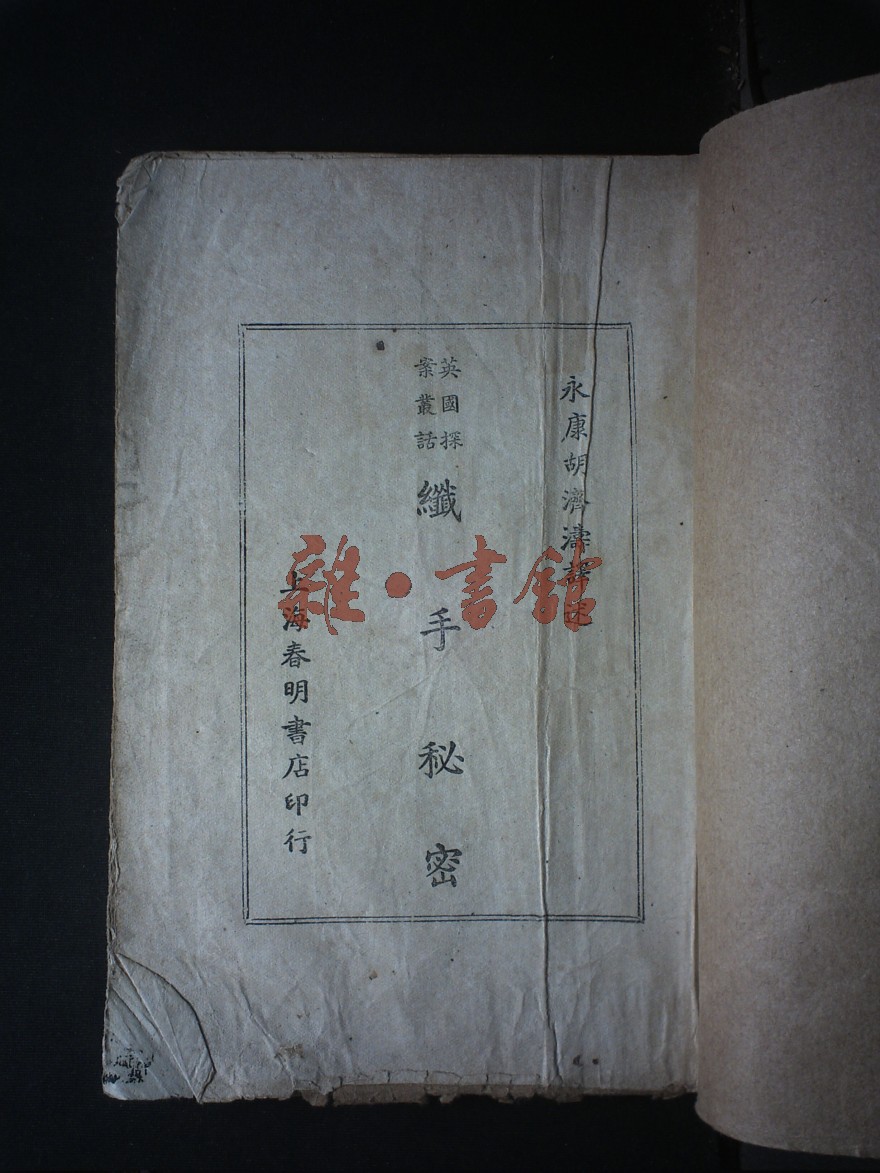 永康胡濟濤譯述
英國探
案叢話
纖手秘密
上海春明書店印行
雜·書館